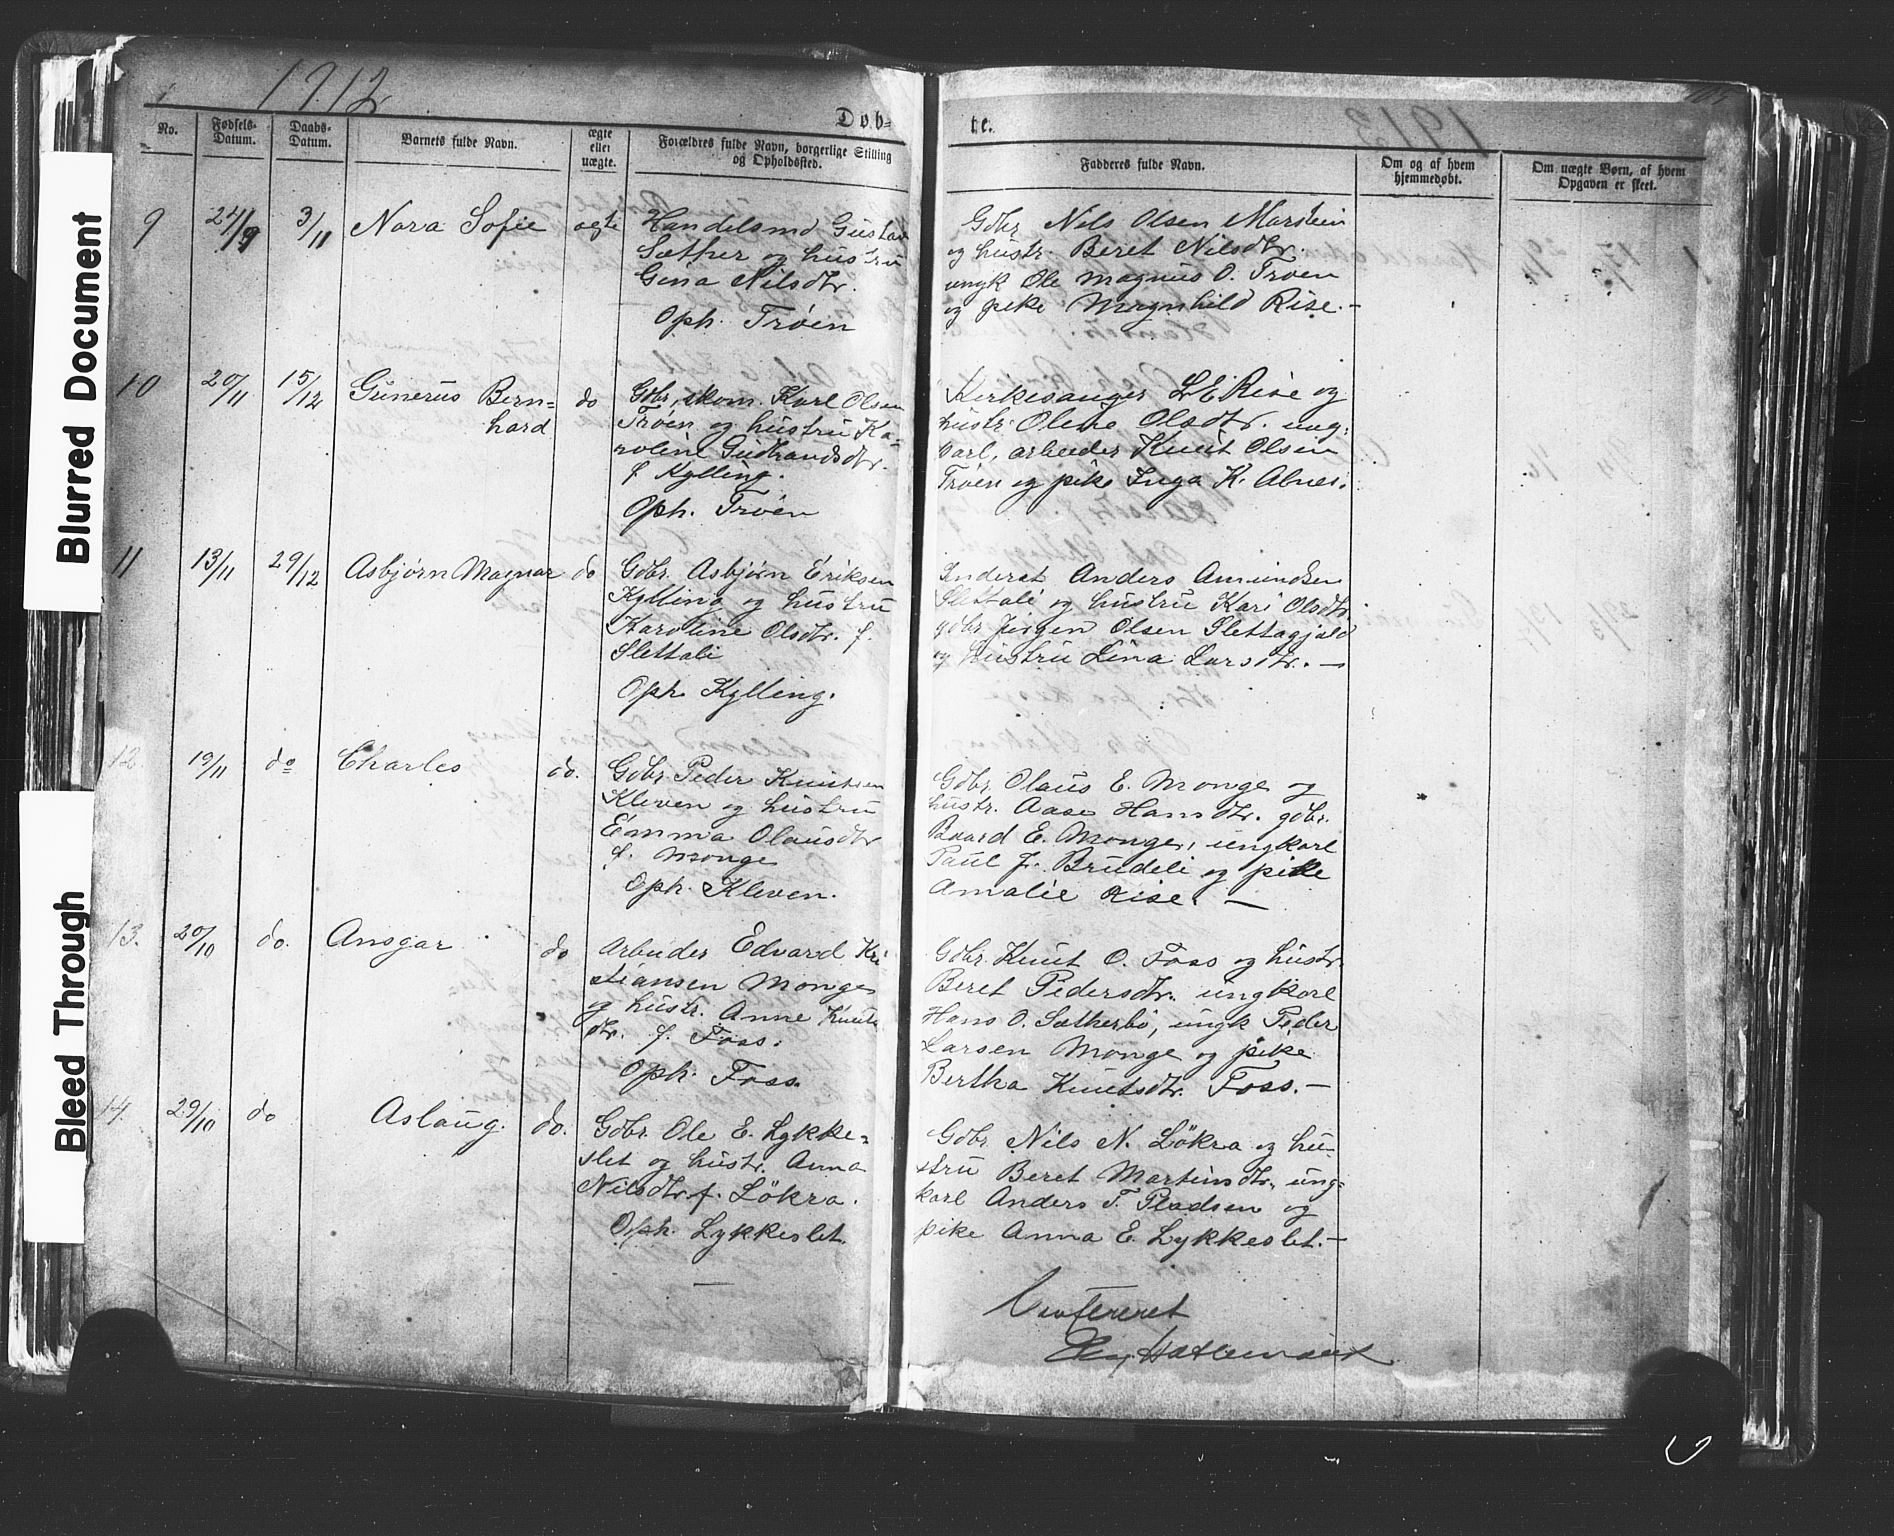 Blurred Document
Bleed Through
1912
Døb-
te.
No.
Fødsels-
Datum.
Daabs-
Datum.
Barnets fulde Navn.
ægte
eller
uægte.
Forældres fulde Navn, borgerlige Stilling
og Opholdssted.
Fadderes fulde Navn.
Om og af hvem
hjemmedøbt.
Om uægte Børn, af hvem
Opgaven er skeet.
9
24/9
3/11
Nora Sofie
ægte
Handelsmd Gustav
Sæther og hustru
Gina Nilsdtr.
Oph. Trøen
Gdbr Nils Olsen Marstein
og hustr. Beret Nilsdtr.
ungk Ole Magnus O. Trøen
og pike Magnhild Rise.-
10
20/11
15/12
Gunerus Bern=
hard
do
Gdbr, skom. Karl Olsen
Trøen og hustru Ka-
roline Gudbrandsdtr.
f Kylling.
Oph. Trøen
Kirkesanger L E Rise og
hustr. Olene Olsdtr. ung-
karl, arbeider Knut Olsen
Trøen og pike Inga K. Alnes.
11
13/11
29/12
Asbjørn Magnar
do
Gdbr. Asbjørn Eriksen
Kylling og hustru
Karoline Olsdtr. f.
Slettali
Oph. Kylling.
Inderst Anders Amundsen
Slettali og hustru Kari Olsdtr.
gdbr Jørgen Olsen Slettagjald
og hustru Lina Larsdtr. —
12.
19/11
do
Charles
do.
Gdbr. Peder Knutsen
Kleven og hustru
Emma Olausdtr
f. Monge
Oph. Kleven.
Gdbr. Olaus E. Monge og
hustr. Aase Hansdtr. gdbr.
Baard E. Monge, ungkarl
Paul J. Brudeli og pike
Amalie Rise. —
13.
20/10
do.
Ansgar
do
Arbeider Edvard Kri
stiansen Monge
og hustr. Anne Knuts
dtr. f. Foss.
Oph. Foss.
Gdbr. Knut O. Foss og hustr.
Beret Pedersdtr. ungkarl
Hans O. Sætherbø, ungk Peder
Larsen Monge og pike
Bertha Knutsdtr. Foss.—
14.
29/10
do
Aslaug.
do.
Gdbr. Ole E. Lykke=
slet og hustr. Anna
Nilsdtr. f. Løkra.
Oph. Lykkeslet.
Gdbr. Nils N. Løkra og hu-
stru Beret Martinsdtr, ung-
karl Anders T. Pladsen og
pike Anna E. Lykkeslet.—